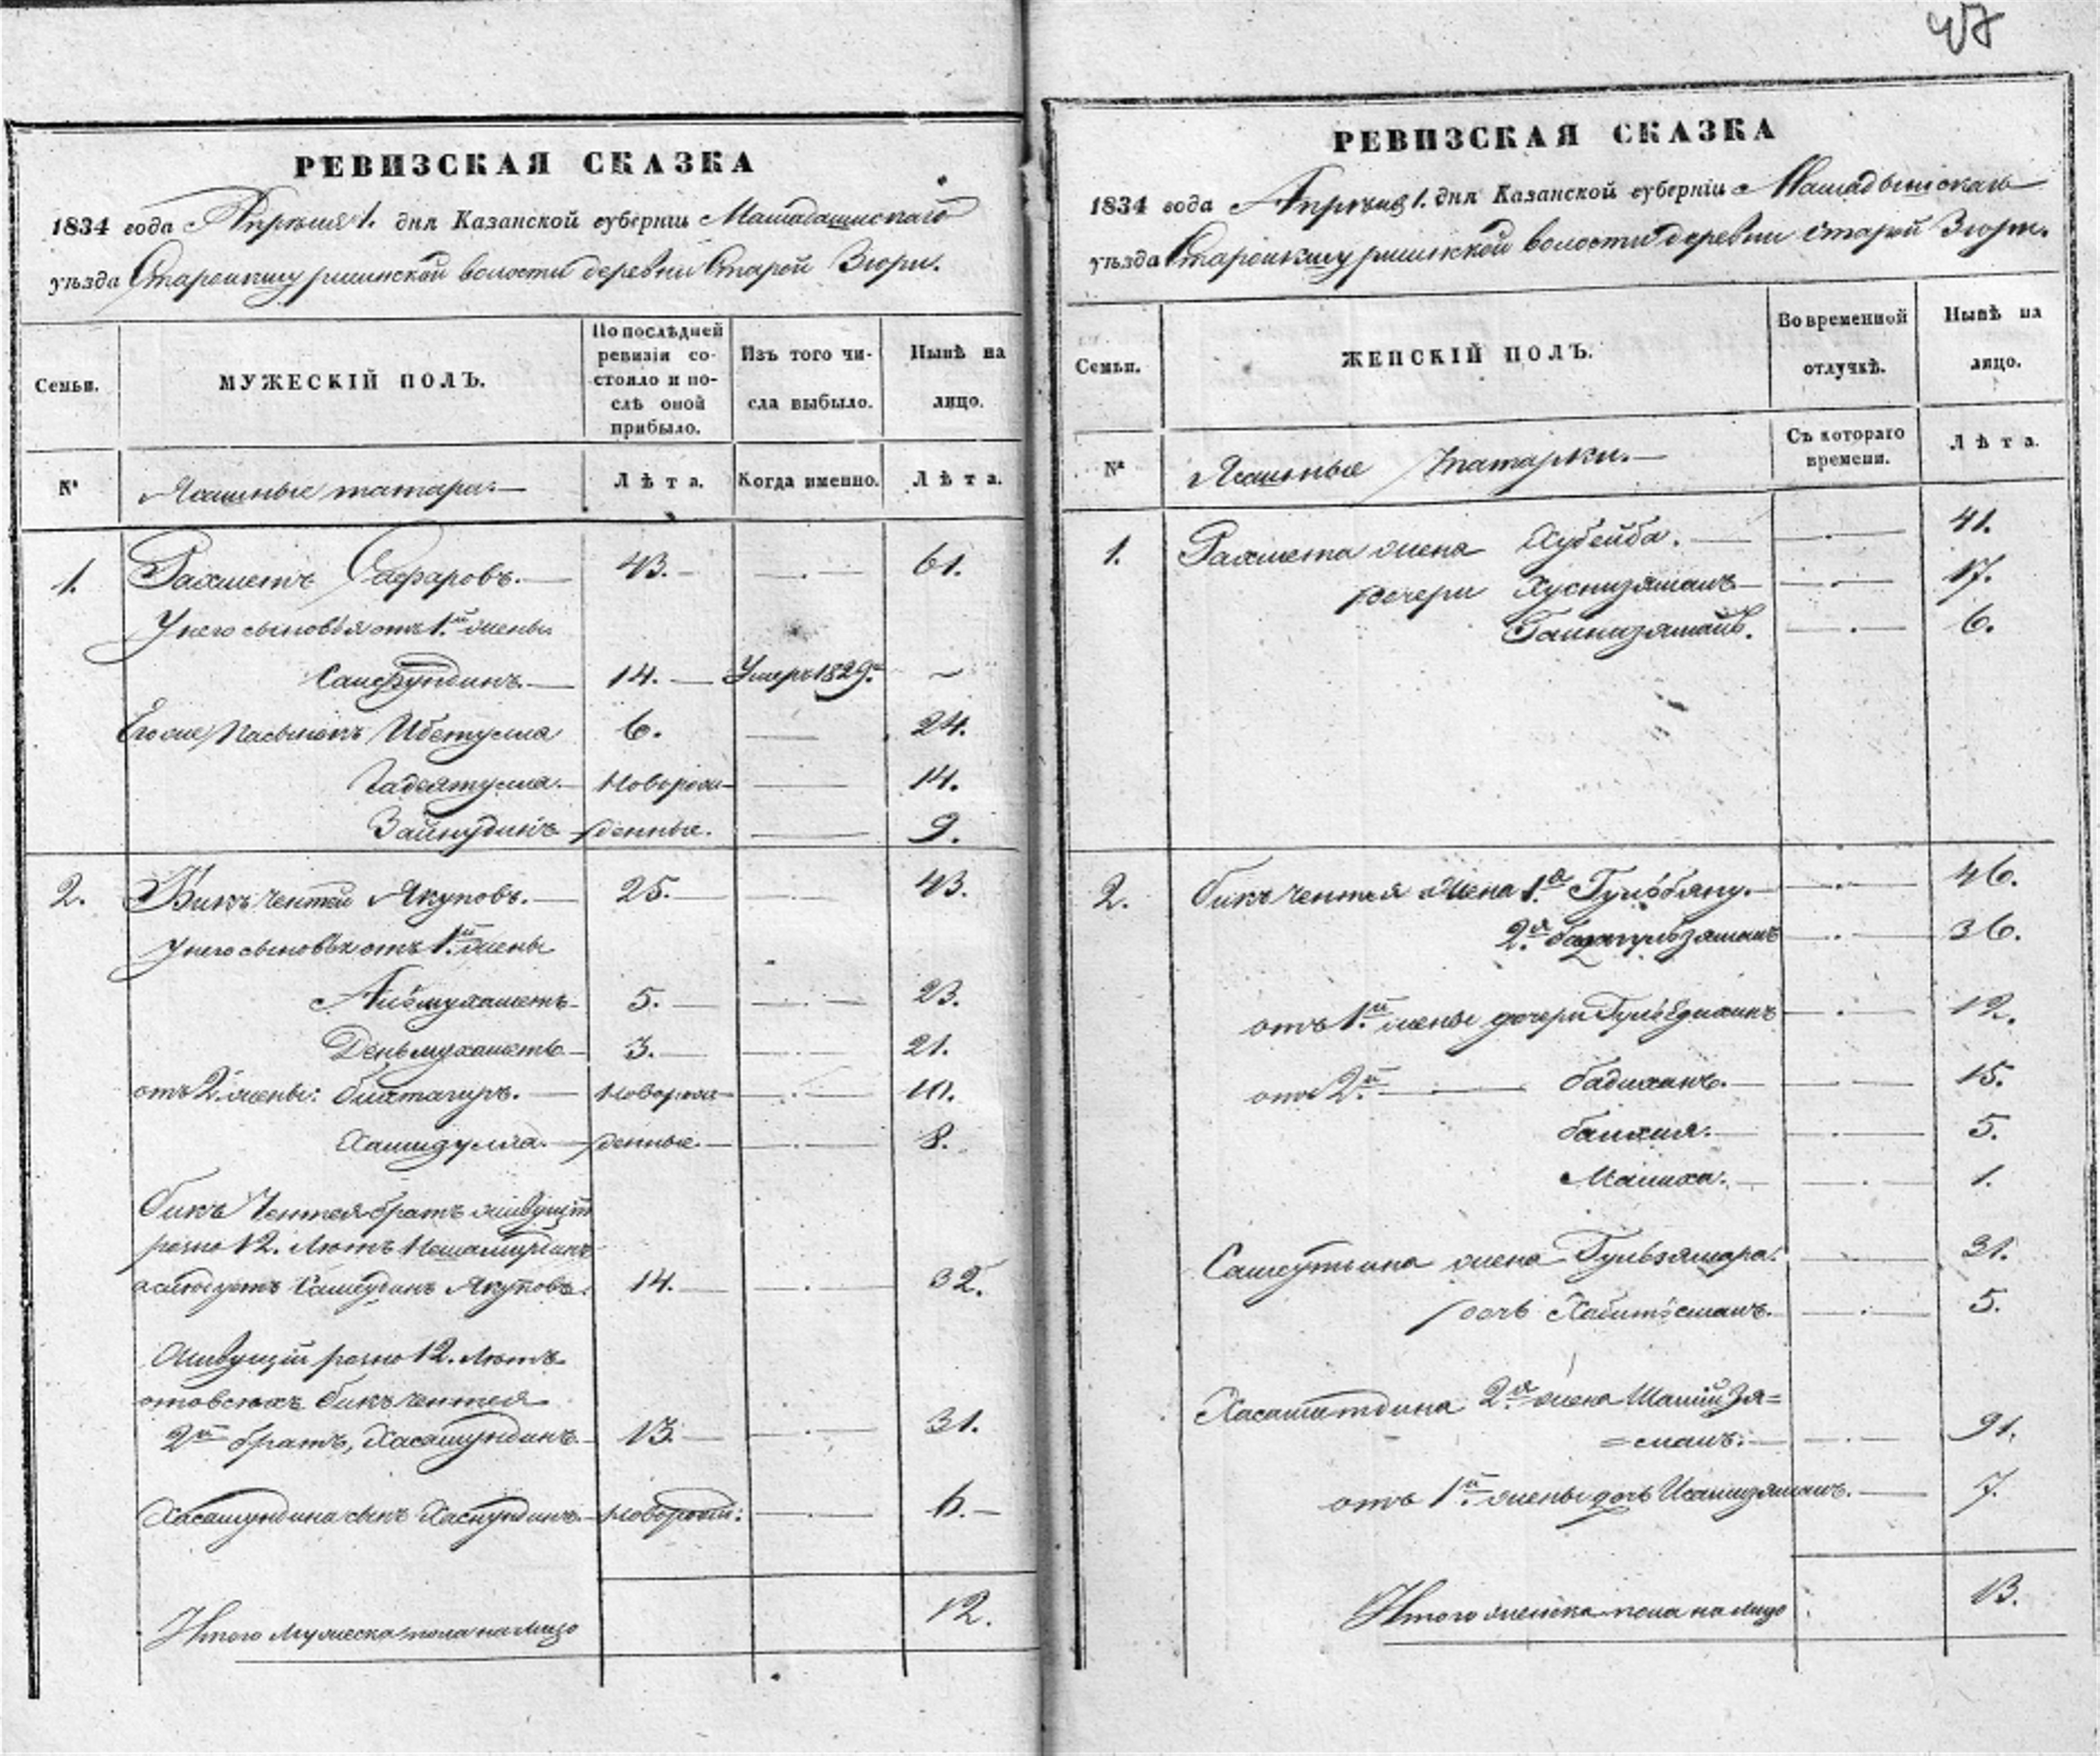 47
РЕВИЗСКАЯ СКАЗКА
1834 года Апреля 1. дня Казанской губерніи Мамадышскаго
уѣзда волости деревни Старой Зюри.
Семьи.
МУЖЕСКІЙ ПОЛЪ.
По послѣдней ревизіи состояло и послѣ оной прибыло.
Изъ того числа выбыло.
Нынѣ на лицо.
№
Ясашные татара.
Лѣта.
Когда именно.
Лѣта.
1. Рахметъ Сафаровъ. 43. 61.
У него сыновья отъ 1.й жены
Сайфундинъ. 14. Умеръ 1829. ~
Его же пасынокъ Ибетулла 6. 24.
Гадеятулла. Новорож- 14.
Зайнудинъ денные. 9.
2. Бикъ Чентей Якуповъ. 25. 43.
У него сыновья отъ 1.й жены
Альмухаметъ 5. 23.
Деньмухаметъ 3. 21.
отъ 2. жены: Биктагиръ. Новорож- 10.
Хамидулла. денные. 8.
Бикъ Чентея братъ живущій
розно 12. лѣтъ
Якуповъ. 14. 32.
Живущій розно 12. лѣтъ
Бикъ Чентея
2й братъ, Хасамундинъ. 13. 31.
Хасамундина сынъ Хаснундинъ. Новорож: 6.
Итого мужеска пола на лицо 12.
РЕВИЗСКАЯ СКАЗКА
1834 года Апреля 1. дня Казанской губерніи Мамадышскаго
уѣзда волости деревни Старой Зюри.
Семьи.
ЖЕНСКІЙ ПОЛЪ.
Во временной отлучкѣ.
Нынѣ на лицо.
№
Ясашные татарки.
Съ котораго времени.
Лѣта.
1. Рахмета жена Хубейба. 41.
дочери Хуснизямалъ 17.
Гайнизямалъ. 6.
2. Бикъ Чентея жена 1.я Гульбяну. 46.
2.я 36.
отъ 1.й жены дочери 12.
отъ 2.й Бадиханъ. 15.
5.
Малиха. 1.
жена Гульзямара. 31.
дочь 5.
Хасаматдина 2.я жена
31.
отъ 1.й жены дочь 7.
Итого женска пола на лицо 13.